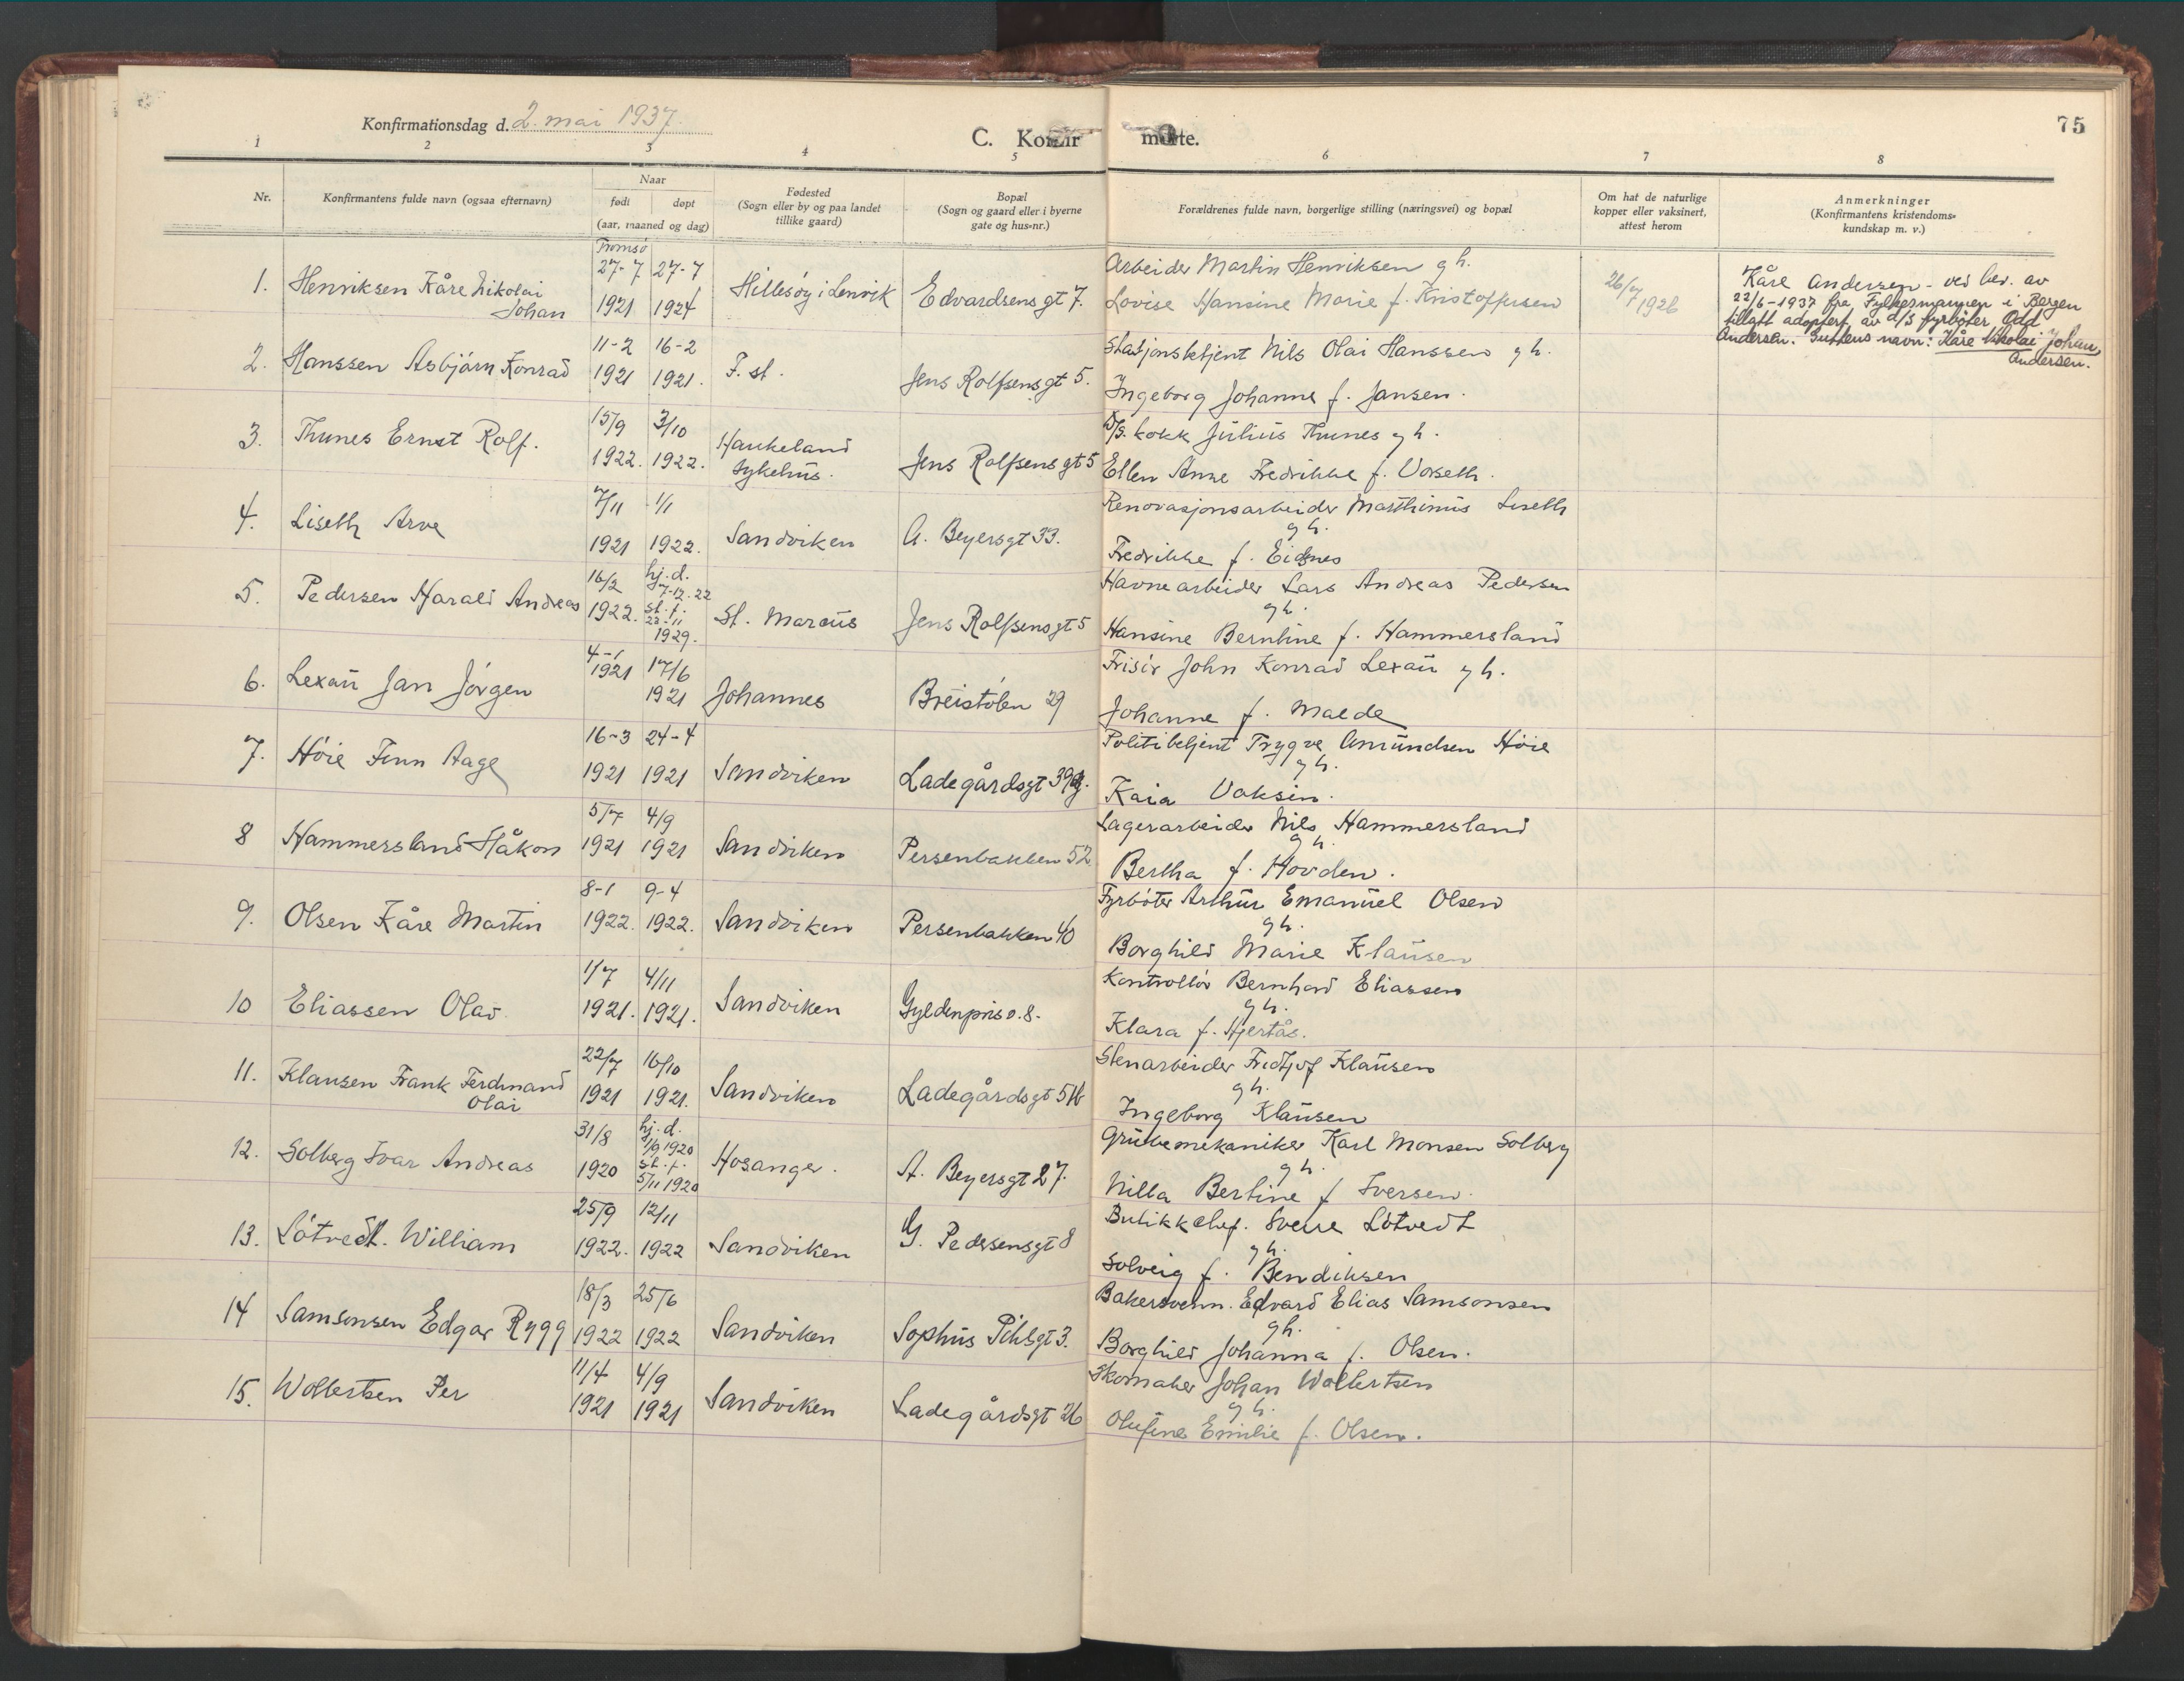 75
Konfirmationsdag d. 2. mai 1937.
C. Konfir
merte.
1 2 3 4 5 6 7 8
Nr.
Konfirmantens fulde navn (ogsaa efternavn)
Naar
født døpt
(aar, maaned og dag)
Fødested
(Sogn eller by og paa landet
tillike gaard)
Bopæl
(Sogn og gaard eller i byerne
gate og hus-nr.)
Forældrenes fulde navn, borgerlige stilling (næringsvei) og bopæl
Om hat de naturlige
kopper eller vaksinert,
attest herom
Anmerkninger
(Konfirmantens kristendoms-
kundskap m. v.)
Tromsø
1. Henriksen Kåre Nikolai
Johan
27-7 1921
27-7 1924
Hillesøy i Lenvik
Edvardsens gt 7.
Arbeider Martin Henriksen g h.
Lovise Hansine Marie f. Kristoffersen
26/7 1926
Kåre Andersen - ved bev. av
22/6-1937 fra Fylkesmannen i Bergen
tillatt adoptert av d/s fyrbøter Odd
Andersen. Guttens navn: Kåre Nikolai Johan
Andersen.
2. Hanssen Asbjørn Konrad
11-2 1921
16-2 1921.
F. st.
Jens Rolfsensgt 5.
Stasjonsbetjent Nils Olai Hanssen g h.
Ingeborg Johanne f. Jansen.
3. Thunes Ernst Rolf.
15/9 1922.
3/10 1922.
Haukeland
Sykehus.
Jens Rolfsens gt 5
D/S. kokk Julius Thunes g h.
Ellen Anne Fredrikke f. Vorseth.
4. Liseth Arve
7/11 1921
1/1 1922.
Sandviken
A. Beyersgt 33.
Renovasjonsarbeider Marthinus Liseth
g h.
Fredrikke f. Eidsnes
5. Pedersen Harald Andreas
16/2 1922.
hj. d.
7-12. 22
st. f.
23-11
1929.
St. Marcus
Jens Rolfsensgt 5
Havnearbeider Lars Andreas Pedersen
g h.
Hansine Berntine f. Hammersland
6. Lexau Jan Jørgen
4-1 1921
17/6 1921
Johannes
Breistølen 29
Frisør John Konrad Lexau g h.
Johanne f. Malde
7. Høie Finn Aage
16-3 1921
24-4 1921
Sandviken
Ladegårdsgt 39
Politibetjent Trygve Amundsen Høie
g h.
Kaia Vaksin.
8 Hammersland Håkon
5/7 1921
4/9 1921
Sandviken
Persenbakken 52
Lagerarbeider Nils Hammersland
g h.
Bertha f. Hovden.
9. Olsen Kåre Martin
8-1 1922.
9-4 1922.
Sandviken
Persenbakken 40
Fyrbøter Arthur Emanuel Olsen
g h.
Borghild Marie Klausen
10 Eliassen Olav
1/7 1921.
4/11 1921.
Sandviken
Gyldenpris o. 8.
Kontrollør Bernhard Eliassen
g h.
Klara f. Hjertås.
11. Klausen Frank Ferdinand
Olai
22/7 1921
16/10 1921.
Sandviken
Ladegårdsgt 51b
Stenarbeider Fridtjof Klausen
g h.
Ingeborg Klausen
12. Solberg Ivar Andreas
31/8 1920
hj. d.
1/9 1920
st. f.
5/11 1920
Hosanger.
A. Beyersgt 27.
Grubemekaniker Karl Monsen Solberg
g h.
Nilla Bertine f Iversen.
13. Løtvedt. William
25/9 1922.
12/11 1922
Sandviken
G. Pedersensgt 8
Butikkchef. Sverre Løtvedt
g h.
Solveig f. Bendiksen
14 Samsonsen Edgar Rygg
18/3 1922
25/6 1922
Sandviken
Sophus Pihlsgt 3.
Bakersvenn. Edvard Elias Samsonsen
g h.
Borghild Johanna f. Olsen.
15. Wollertsen Per
11/4 1921
4/9 1921
Sandviken
Ladegårdsgt 26
Skomaker Johan Wollertsen
g h.
Olufine Emilie f. Olsen.